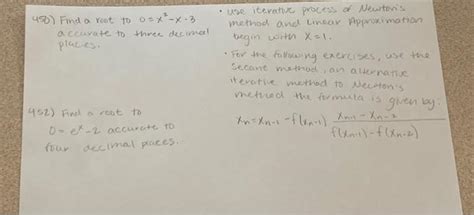 450) Find a root to 0 = x² - x - 3
accurate to three decimal
places.
452) Find a root to
0 = eˣ - 2 accurate to
four decimal places.
• use iterative process of Newton's
method and Linear Approximation
begin with x = 1.
• For the following exercises, use the
secant method, an alternative
iterative method to Newton's
method the formula is given by:
xₙ = xₙ₋₁ - f(xₙ₋₁) (xₙ₋₁ - xₙ₋₂) / (f(xₙ₋₁) - f(xₙ₋₂))